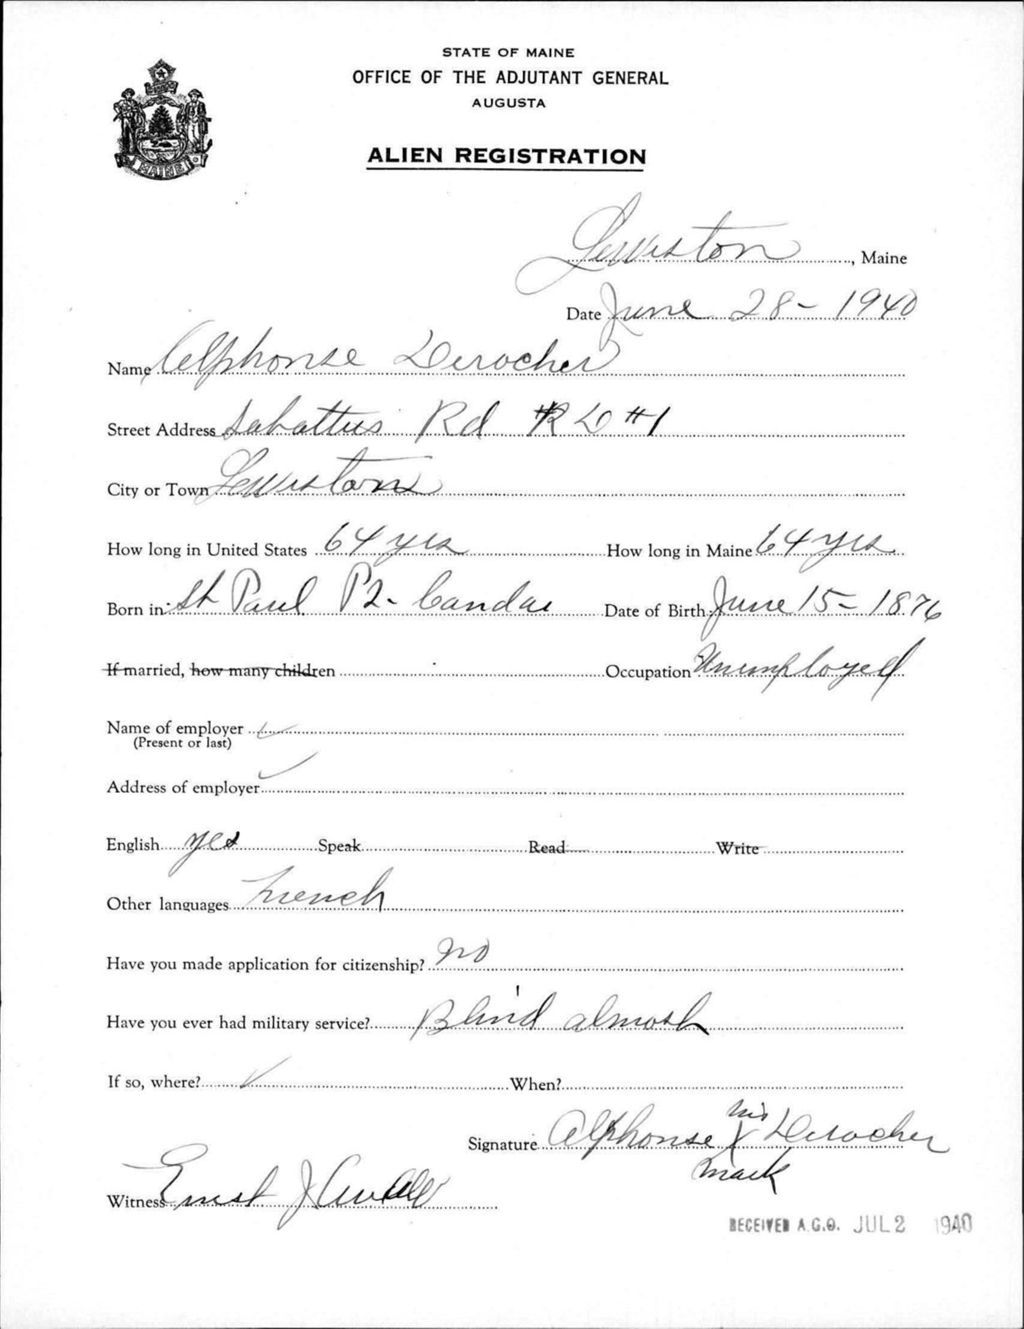 STATE OF MAINE
OFFICE OF THE ADJUTANT GENERAL
AUGUSTA
ALIEN REGISTRATION
MAINE
Lewiston, Maine
Date June 28 - 1940
Name Alphonse Derocher
Street Address Sabattus Rd R D #1
City or Town Lewiston
How long in United States 64 yrs How long in Maine 64 yrs
Born in St Paul P2 - Candae Date of Birth June 15 - 1876
If married, how many children Occupation Unemployed
Name of employer
(Present or last)
Address of employer
English yes Speak Read Write
Other languages French
Have you made application for citizenship? no
Have you ever had military service? Blind almost
If so, where? When?
his
Signature Alphonse X Derocher
mark
Witness Ernst J
RECEIVED A.G.O. JUL 2 1940